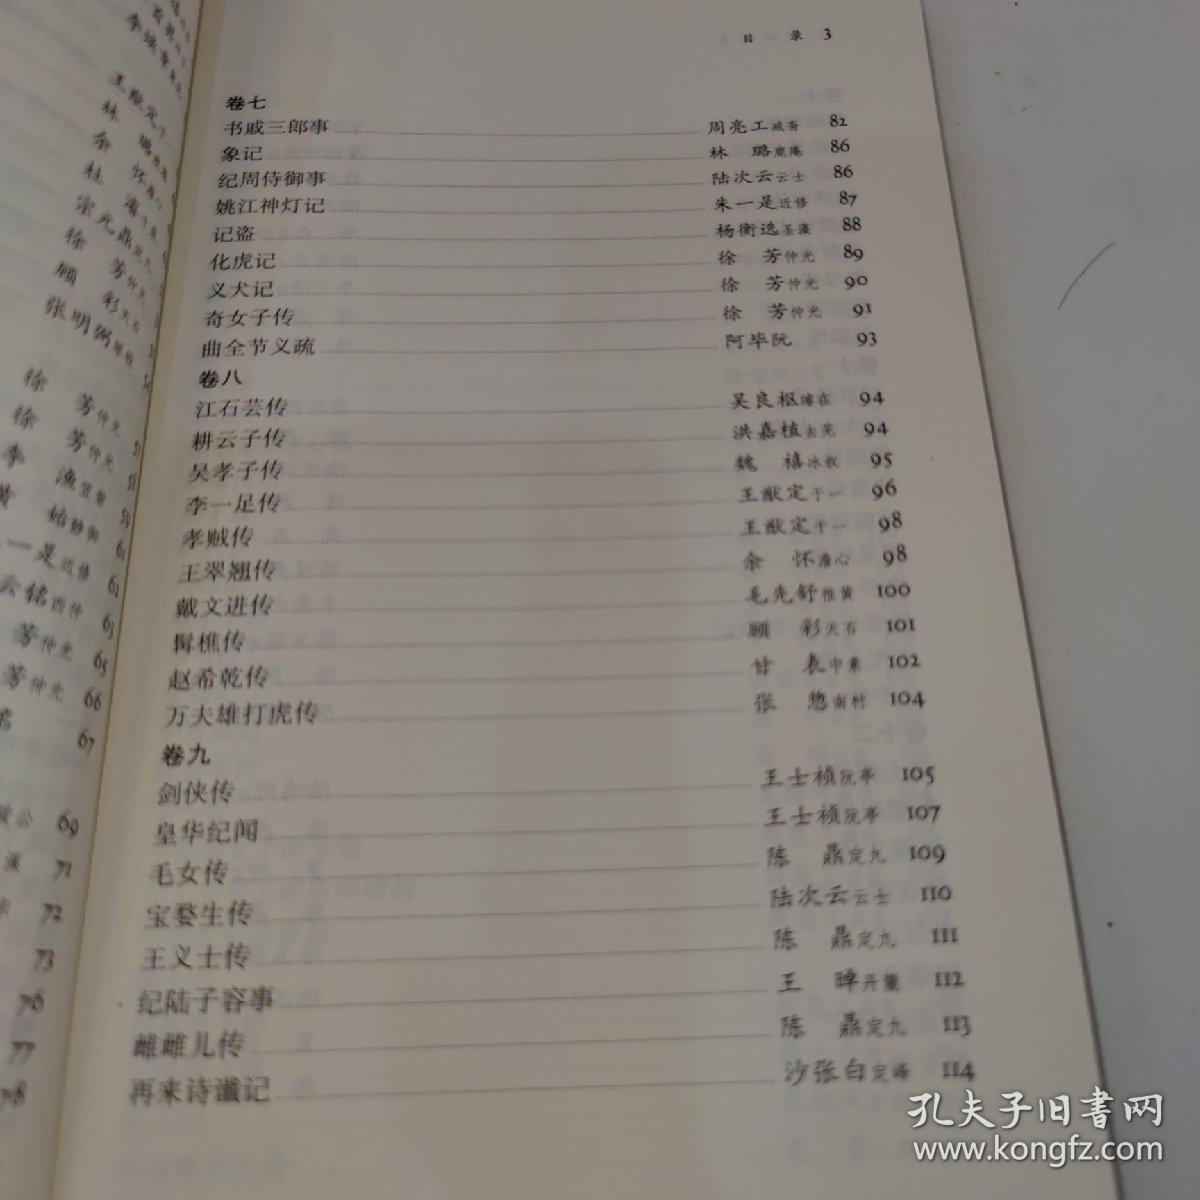 目 录 3
卷七
书戚三郎事 周亮工减斋 82
象记 林 璐鹿庵 86
纪周侍御事 陆次云云士 86
姚江神灯记 朱一是近修 87
记盗 杨衡选圣藻 88
化虎记 徐 芳仲光 89
义犬记 徐 芳仲光 90
奇女子传 徐 芳仲光 91
曲全节义疏 阿毕阮 93
卷八
江石芸传 吴良枢璿在 94
耕云子传 洪嘉植去芜 94
吴孝子传 魏 禧冰叔 95
李一足传 王猷定于一 96
孝贼传 王猷定于一 98
王翠翘传 余 怀澹心 98
戴文进传 毛先舒稚黄 100
髯樵传 顾 彩天石 101
赵希乾传 甘 表中素 102
万夫雄打虎传 张 惣南村 104
卷九
剑侠传 王士祯阮亭 105
皇华纪闻 王士祯阮亭 107
毛女传 陈 鼎定九 109
宝婺生传 陆次云云士 110
王义士传 陈 鼎定九 111
纪陆子容事 王 晫丹麓 112
雌雌儿传 陈 鼎定九 113
再来诗谶记 沙张白定峰 114
王猷定于一
林
余 怀
杜
宗元鼎定九
徐 芳仲光
顾 彩天石
张明弼
徐 芳仲光
徐 芳仲光
李 渔笠翁
黄 始静御 61
一是近修 62
云铭西仲 63
芳仲光 65
芳仲光 66
67
69
71
72
73
76
77
78
孔夫子旧書网
www.kongfz.com